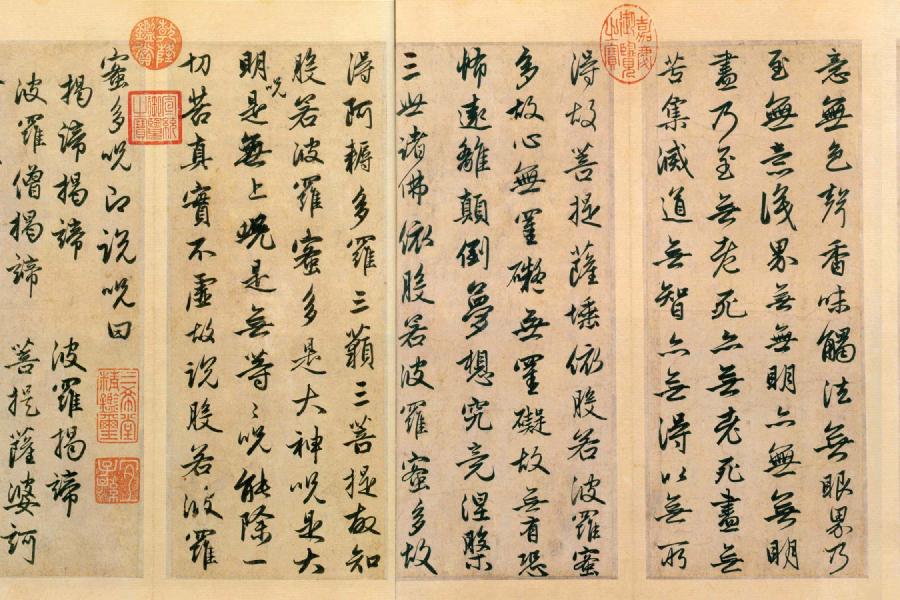 意無色聲香味觸法無眼界乃
至無意識界無無明亦無無明
盡乃至無老死亦無老死盡無
苦集滅道無智亦無得以無所
得故菩提薩埵依般若波羅蜜
多故心無罣礙無罣礙故無有恐
怖遠離顛倒夢想究竟涅槃
三世諸佛依般若波羅蜜多故
得阿耨多羅三藐三菩提故知
般若波羅蜜多是大神呪是大
明呪是無上呪是無等〻呪能除一
切苦真實不虛故說般若波羅
蜜多呪即說呪曰
揭諦揭諦 波羅揭諦
波羅僧揭諦 菩提薩婆訶
嘉慶御覽之寶
乾隆鑑賞
宣統御覽之寶
三希堂精鑑璽
宜子孫